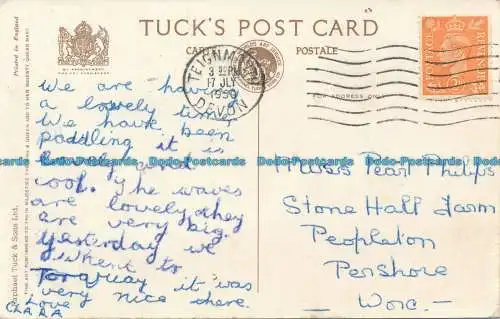 TUCK'S POST CARD
CARTE POSTALE
BY APPOINTMENT
Printed in England
FOR ADDRESS ONLY
TEIGNMOUTH
3 PM
17 JLY
1950
DEVON
POSTAGE REVENUE
Raphael Tuck & Sons Ltd.
We are having
a lovely time
We have been
paddling it is
lovely and
cool. The waves
are lovely they
are very big.
yesterday we
whent to
Torquay it was
very nice there.
Love
CLARA
Misses Pearl Philips
Stone Hall Farm
Peopleton
Pershore
— Worc —
Postcards